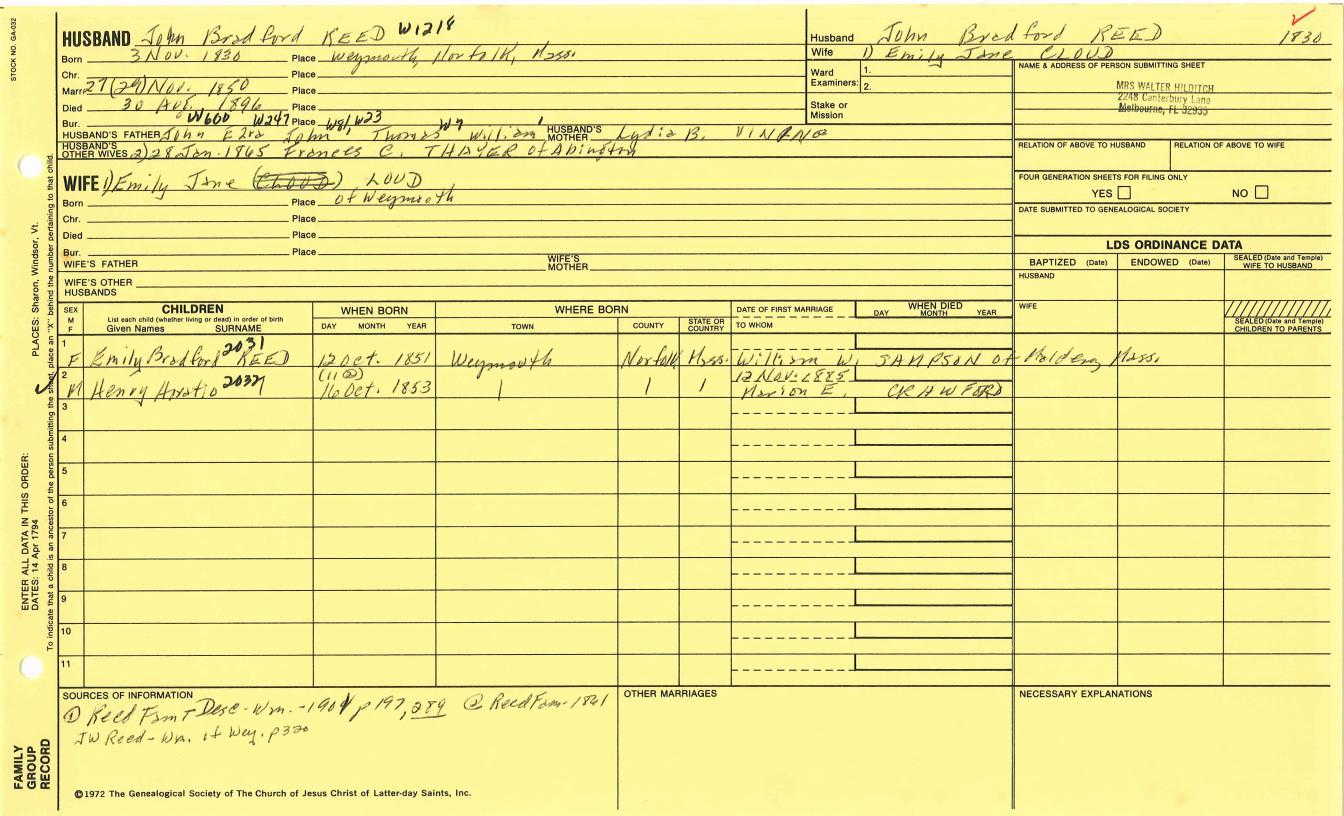 STOCK NO. GA-032
HUSBAND John Bradford REED W1218
Born 3 Nov. 1830 Place Weymouth, Norfolk, Mass.
Chr. Place
Marr. 27(29) Nov. 1850 Place
Died 30 Aug. 1896 Place
Bur. W600 W247 Place W81 W23 W7
HUSBAND'S FATHER John Ezra John Thomas William HUSBAND'S MOTHER Lydia B. VINING
HUSBAND'S OTHER WIVES 2) 28 Jan. 1865 Frances C. THAYER of Abington
WIFE 1) Emily Jane (CLOUD) LOUD
Born Place of Weymouth
Chr. Place
Died Place
Bur. Place
WIFE'S FATHER WIFE'S MOTHER
WIFE'S OTHER HUSBANDS
Husband John Bradford REED 1830
Wife 1) Emily Jane CLOUD
Ward Examiners: 1.
2.
Stake or Mission
NAME & ADDRESS OF PERSON SUBMITTING SHEET
MRS WALTER HILDITCH
2248 Canterbury Lane
Melbourne, FL 32935
RELATION OF ABOVE TO HUSBAND RELATION OF ABOVE TO WIFE
FOUR GENERATION SHEETS FOR FILING ONLY
YES NO
DATE SUBMITTED TO GENEALOGICAL SOCIETY
LDS ORDINANCE DATA
BAPTIZED (Date) ENDOWED (Date) SEALED (Date and Temple) WIFE TO HUSBAND
HUSBAND
WIFE
SEALED (Date and Temple) CHILDREN TO PARENTS
SEX M F
CHILDREN
List each child (whether living or dead) in order of birth
Given Names SURNAME
WHEN BORN
DAY MONTH YEAR
WHERE BORN
TOWN COUNTY STATE OR COUNTRY
DATE OF FIRST MARRIAGE
TO WHOM
WHEN DIED
DAY MONTH YEAR
1 F Emily Bradford 2031 REED 12 Oct. 1851 Weymouth Norfolk Mass. William W. SAMPSON of Malden, Mass.
2 M Henry Horatio 2032 (11 ②) 16 Oct. 1853 12 Nov. 1885 Marion E. CRAWFORD
3
4
5
6
7
8
9
10
11
SOURCES OF INFORMATION
① Reed Fam + Desc - Wm. - 1901 p 197, 289 ② Reed Fam - 1861
JW Reed - Wm. of Wey. p 320
OTHER MARRIAGES
NECESSARY EXPLANATIONS
©1972 The Genealogical Society of The Church of Jesus Christ of Latter-day Saints, Inc.
ENTER ALL DATA IN THIS ORDER:
DATES: 14 Apr 1794
PLACES: Sharon, Windsor, Vt.
To indicate that a child is an ancestor of the person submitting the sheet, place an "X" behind the number pertaining to that child.
FAMILY GROUP RECORD